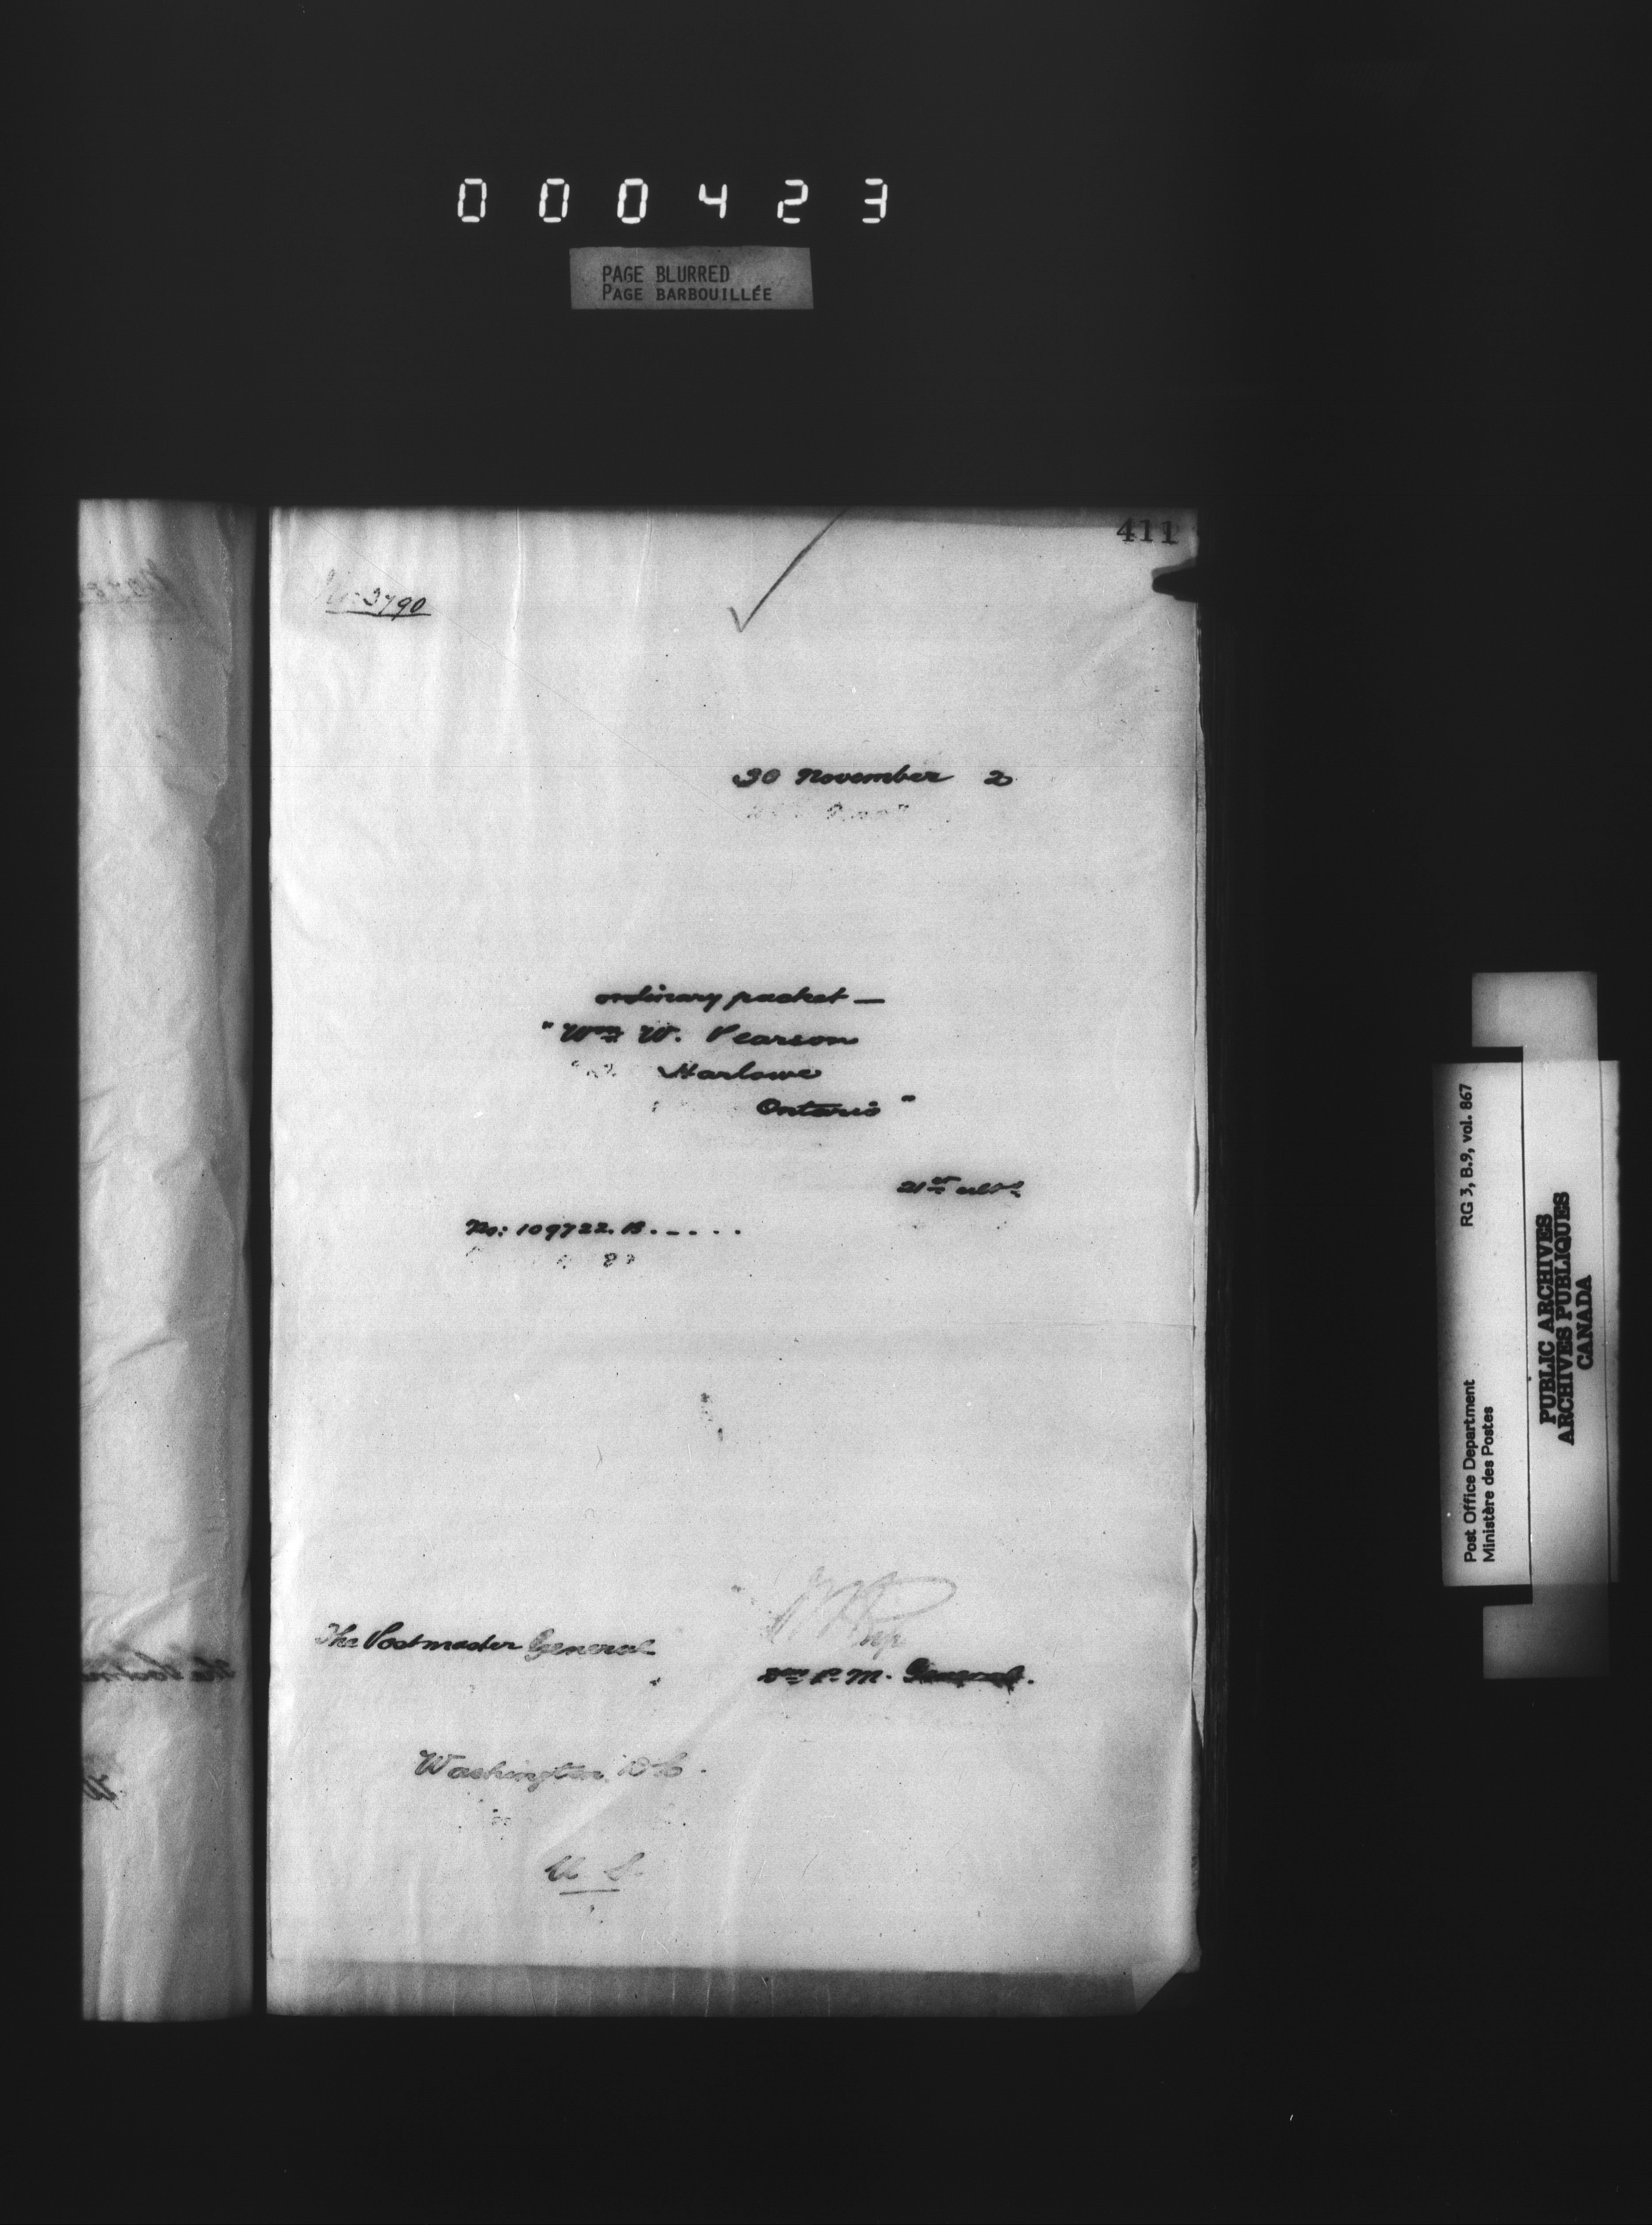 000423
PAGE BLURRED
PAGE BARBOUILLÉE
411
No: 3790
30 November 2
ordinary packet —
"Wm W. Pearson
Harlowe
Ontario"
21st ulto
No: 109722.B.----
The Postmaster General
P. M. General.
Washington, D.C.
U S.
RG 3, B.9, vol. 867
Post Office Department
Ministère des Postes
PUBLIC ARCHIVES
ARCHIVES PUBLIQUES
CANADA